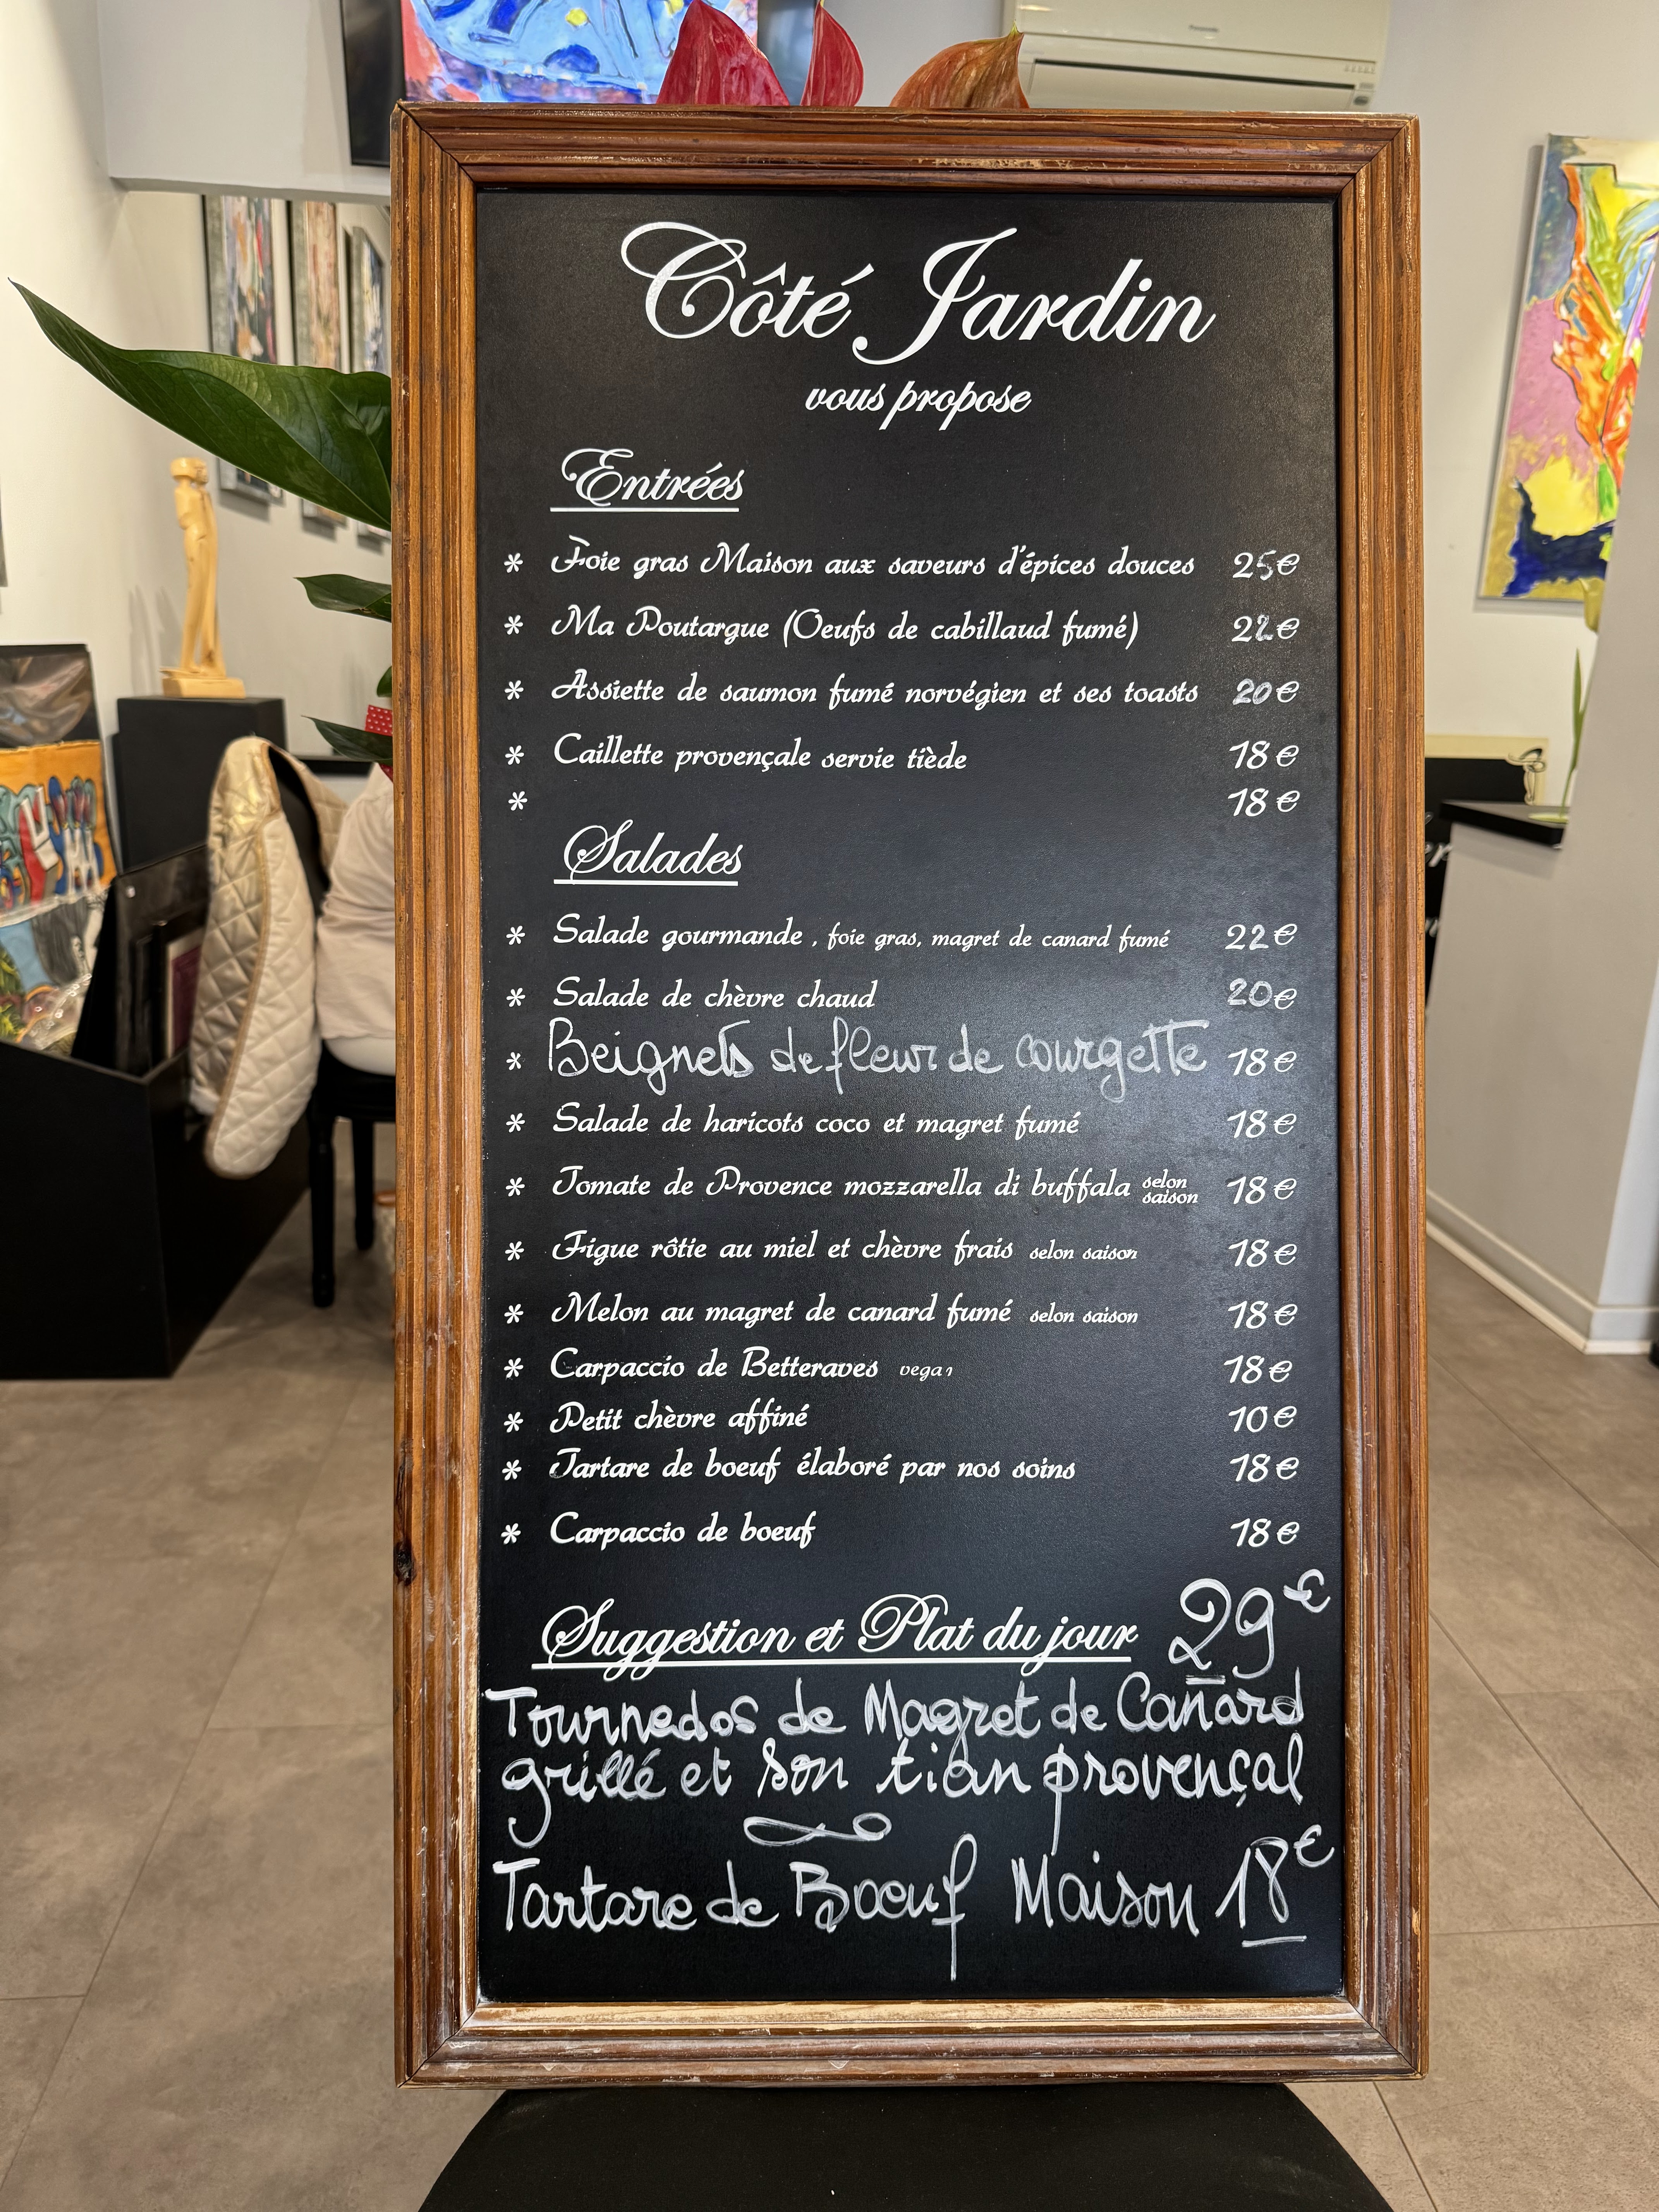 Côté Jardin
vous propose
Entrées
* Foie gras Maison aux saveurs d'épices douces 25€
* Ma Poutargue (Oeufs de cabillaud fumé) 22€
* Assiette de saumon fumé norvégien et ses toasts 20€
* Caillette provençale servie tiède 18€
* 18€
Salades
* Salade gourmande, foie gras, magret de canard fumé 22€
* Salade de chèvre chaud 20€
* Beignets de fleur de courgette 18€
* Salade de haricots coco et magret fumé 18€
* Tomate de Provence mozzarella di buffala selon saison 18€
* Figue rôtie au miel et chèvre frais selon saison 18€
* Melon au magret de canard fumé selon saison 18€
* Carpaccio de Betteraves vegan 18€
* Petit chèvre affiné 10€
* Tartare de boeuf élaboré par nos soins 18€
* Carpaccio de boeuf 18€
Suggestion et Plat du jour 29€
Tournedos de Magret de Canard
grillé et son tian provençal
Tartare de Boeuf Maison 18€